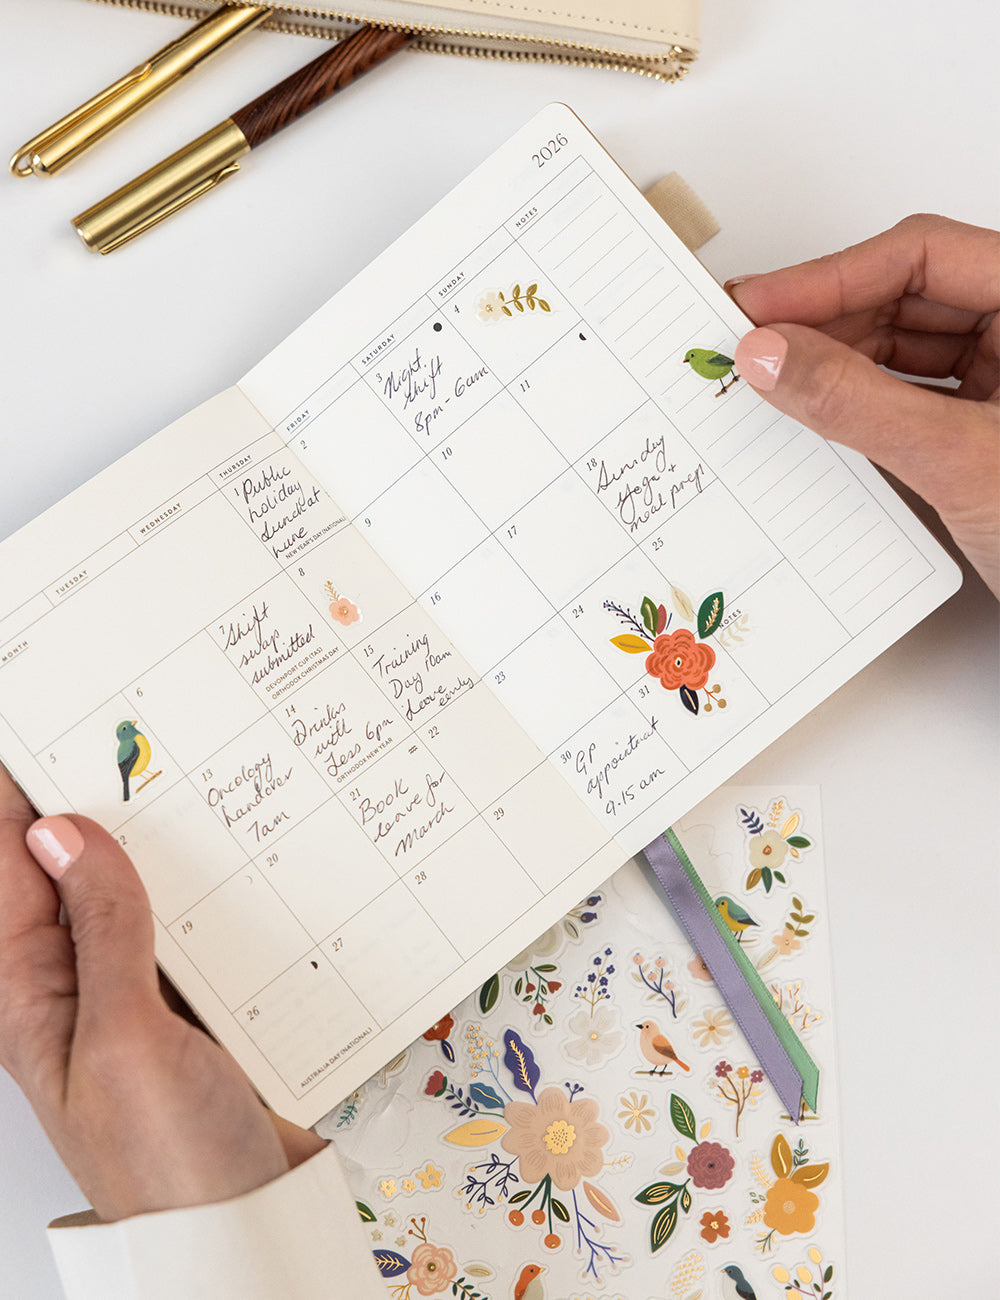 2026
MONTH
TUESDAY
WEDNESDAY
THURSDAY
FRIDAY
SATURDAY
SUNDAY
NOTES
1
Public
holiday
Lunch at
NEW YEAR'S DAY (NATIONAL)
2
3
Night
shift
8pm - 6am
4
5
6
7
Shift
swap
submitted
DEVONPORT CUP (TAS)
ORTHODOX CHRISTMAS DAY
8
9
10
11
12
13
Oncology
handover
7am
14
Drinks
with
Jess 6pm
ORTHODOX NEW YEAR
15
Training
Day 10am
Leave
early
16
17
18
Sunday
yoga +
meal prep
19
20
21
Book
leave for
March
22
23
24
25
NOTES
26
AUSTRALIA DAY (NATIONAL)
27
28
29
30
GP
appointment
9.15 am
31